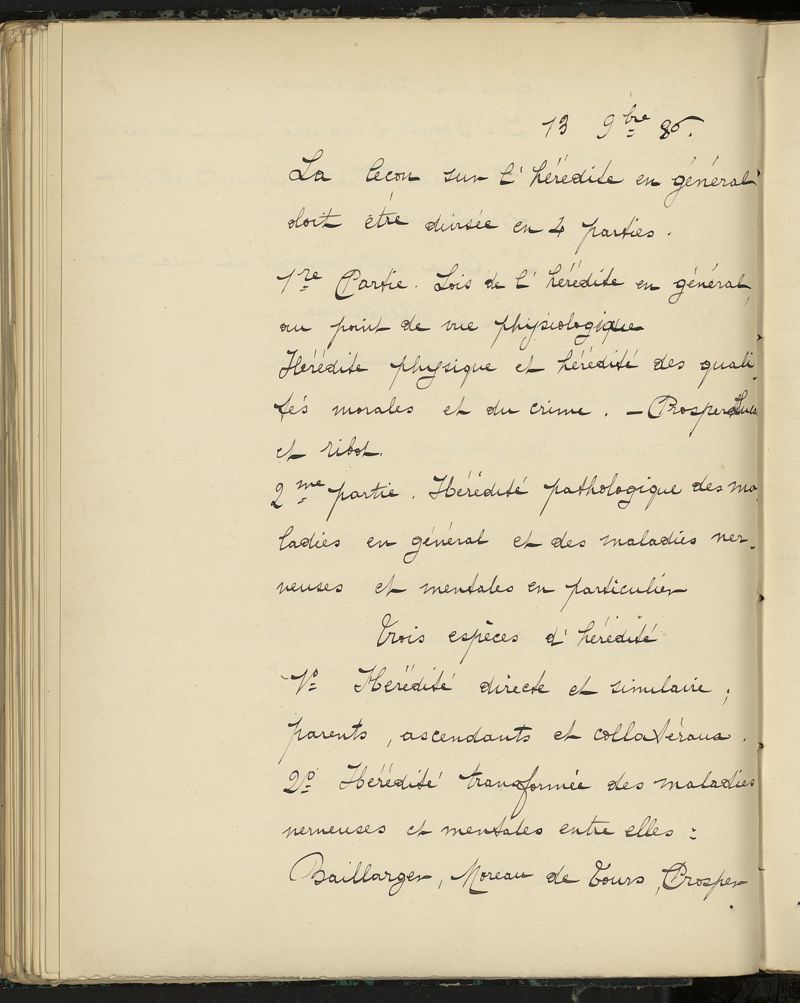 13 9bre 86.
La leçon sur l'hérédité en général
doit être divisée en 4 parties.
1re Partie. Lois de l'hérédité en général,
au point de vue physiologique
Hérédité physique et hérédité des quali-
tés morales et du crime. — Prosper Lucas
et ribot.
2me partie. Hérédité pathologique des ma-
ladies en général et des maladies ner-
veuses et mentales en particulier
Trois espèces d'hérédité
1o Hérédité directe et similaire ;
parents, ascendants et collatéraux.
2o Hérédité transformée des maladies
nerveuses et mentales entre elles :
Baillarger, Moreau de Tours, Prosper